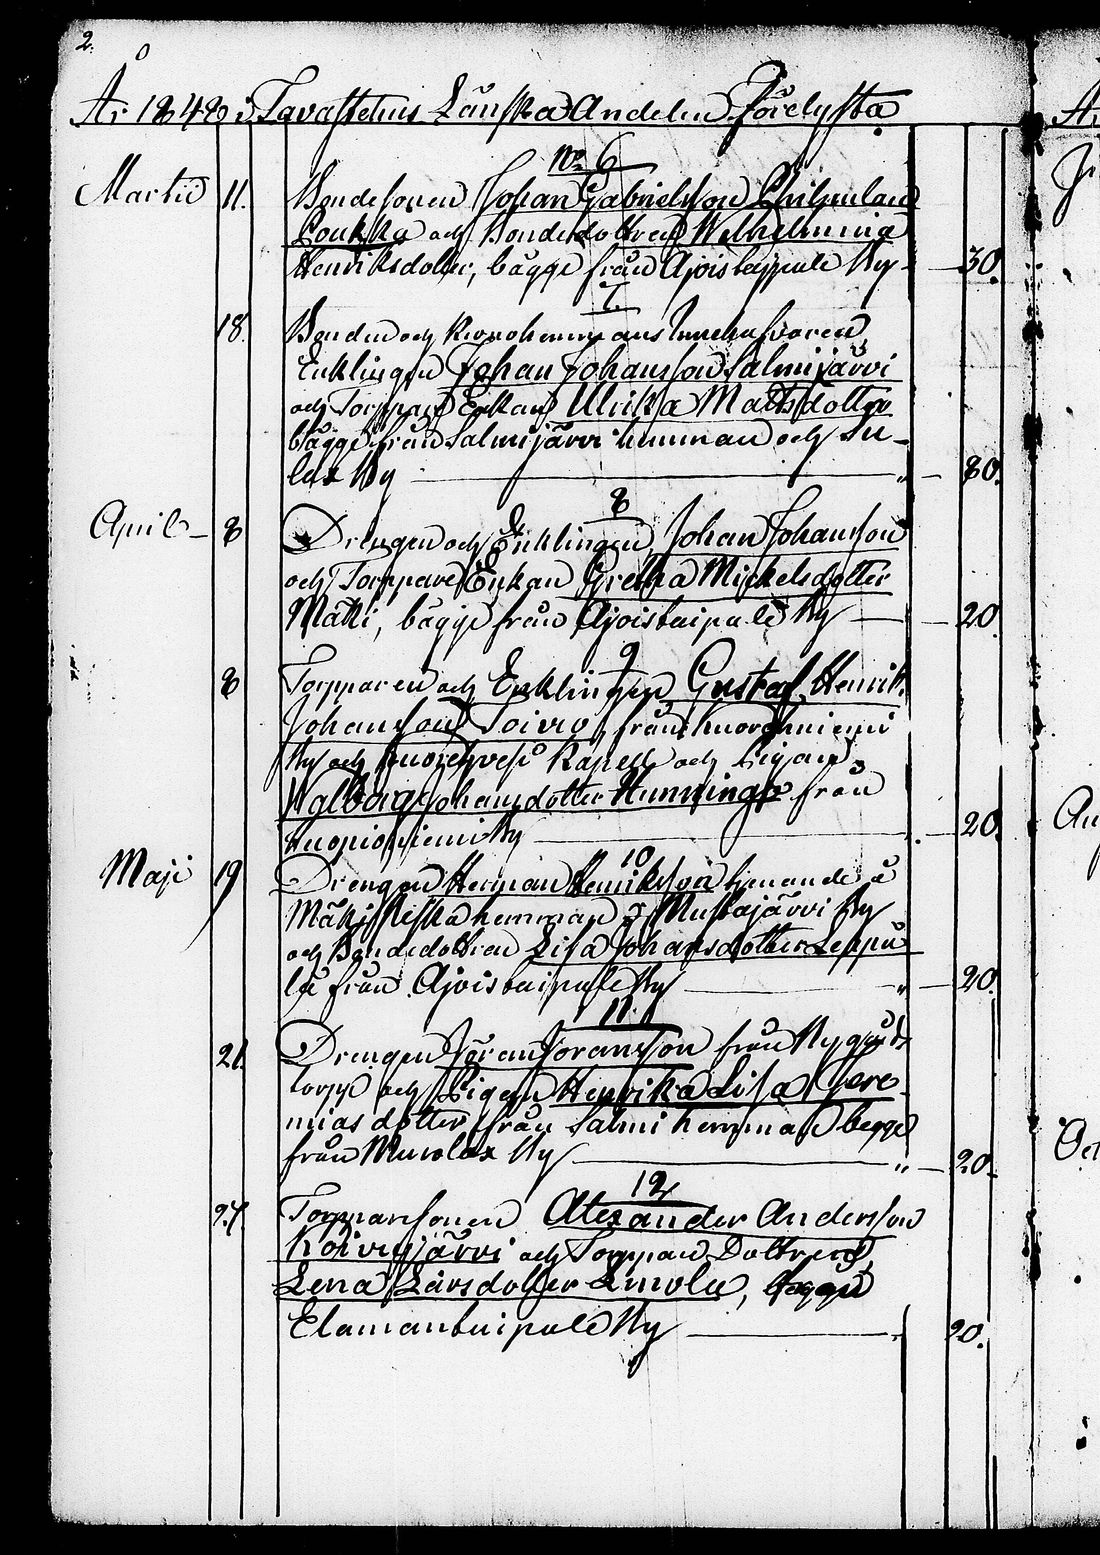 2.
År 1848 i Tavastehus Länska Andelen Förelysta
No 6
Martii 11. Bondesonen Johan Gabrielsson
Loukko och Bondedottren Wilhelmina
Henriksdotter, bägge från Ajostaippale By 30.
7.
18. Bonden och Kronohemmans Innehafvaren,
Enklingen Johan Johansson Salmijärvi
och Torppare Enkan Ulrika Mattsdotter
bägge från Salmijärvi hemman och
By 80.
8
April 8 Drengen och Enklingen, Johan Johansson
och Torppare Enkan Gretha Mickelsdotter
Matti, bägge från Ajostaipale By 20.
9
8 Torpparen och Enklingen, Gustaf Henrik
Johansson Toivio, från Kuorehniemi
By och Kuorehvesi Kapell och Pigan,
Walborg Johansdotter Hunninge från
Kuopioniemi By 20.
10
Maji 19 Drengen Herman Henriksson tjenande å
Mäki hemman i Mustajärvi By
och Bondedottren Lisa Johansdotter Leppä
lä från Ajostaipale By 20.
11.
21. Drengen Jöran Joransson från Nygårds
torpp och Pigan Henrika Lisa Jere-
mias dotter från Salmi hemman begge
från Murolax By 20.
12
27. Torpparesonen Alexander Andersson
Koivujärvi och Torppare Dottren,
Lena Larsdotter, bägge
Elamantaipale By 20.